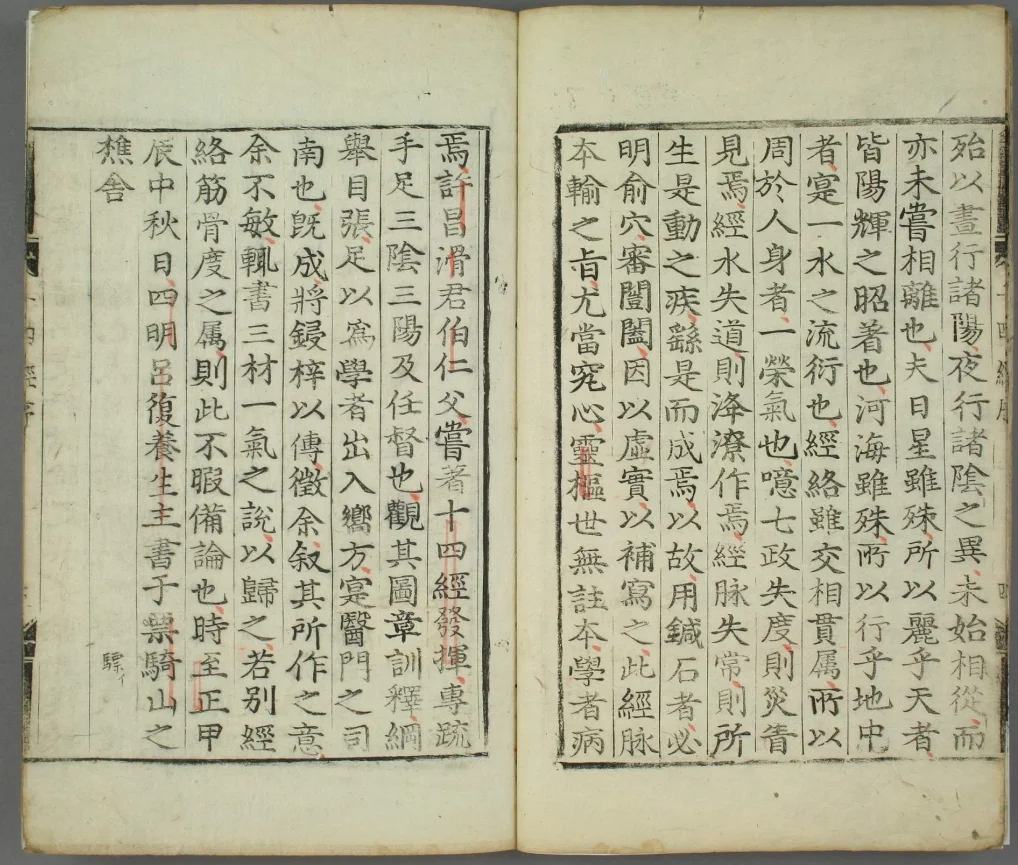 殆以晝行諸陽夜行諸陰之異未始相從而
亦未嘗相離也夫日星雖殊所以麗乎天者
皆陽輝之昭著也河海雖殊所以行乎地中
者寔一水之流衍也經絡雖交相貫属所以
周於人身者一榮氣也噫七政失度則災眚
見焉經水失道則洚潦作焉經脉失常則所
生是動之疾繇是而成焉以故用鍼石者必
明俞穴審闓闔因以虛實以補寫之此經脉
本輸之旨尤當究心靈樞世無註本學者病
焉許昌滑君伯仁父嘗著十四經發揮專疏
手足三陰三陽及任督也觀其圖章訓釋綱
舉目張足以爲學者出入嚮方寔醫門之司
南也旣成將鋟梓以傳徵余叙其所作之意
余不敏輒書三材一氣之說以歸之若别經
絡筋骨度之属則此不暇備論也時至正甲
辰中秋日四明呂復養生主書于票騎山之
樵舍
驃イ